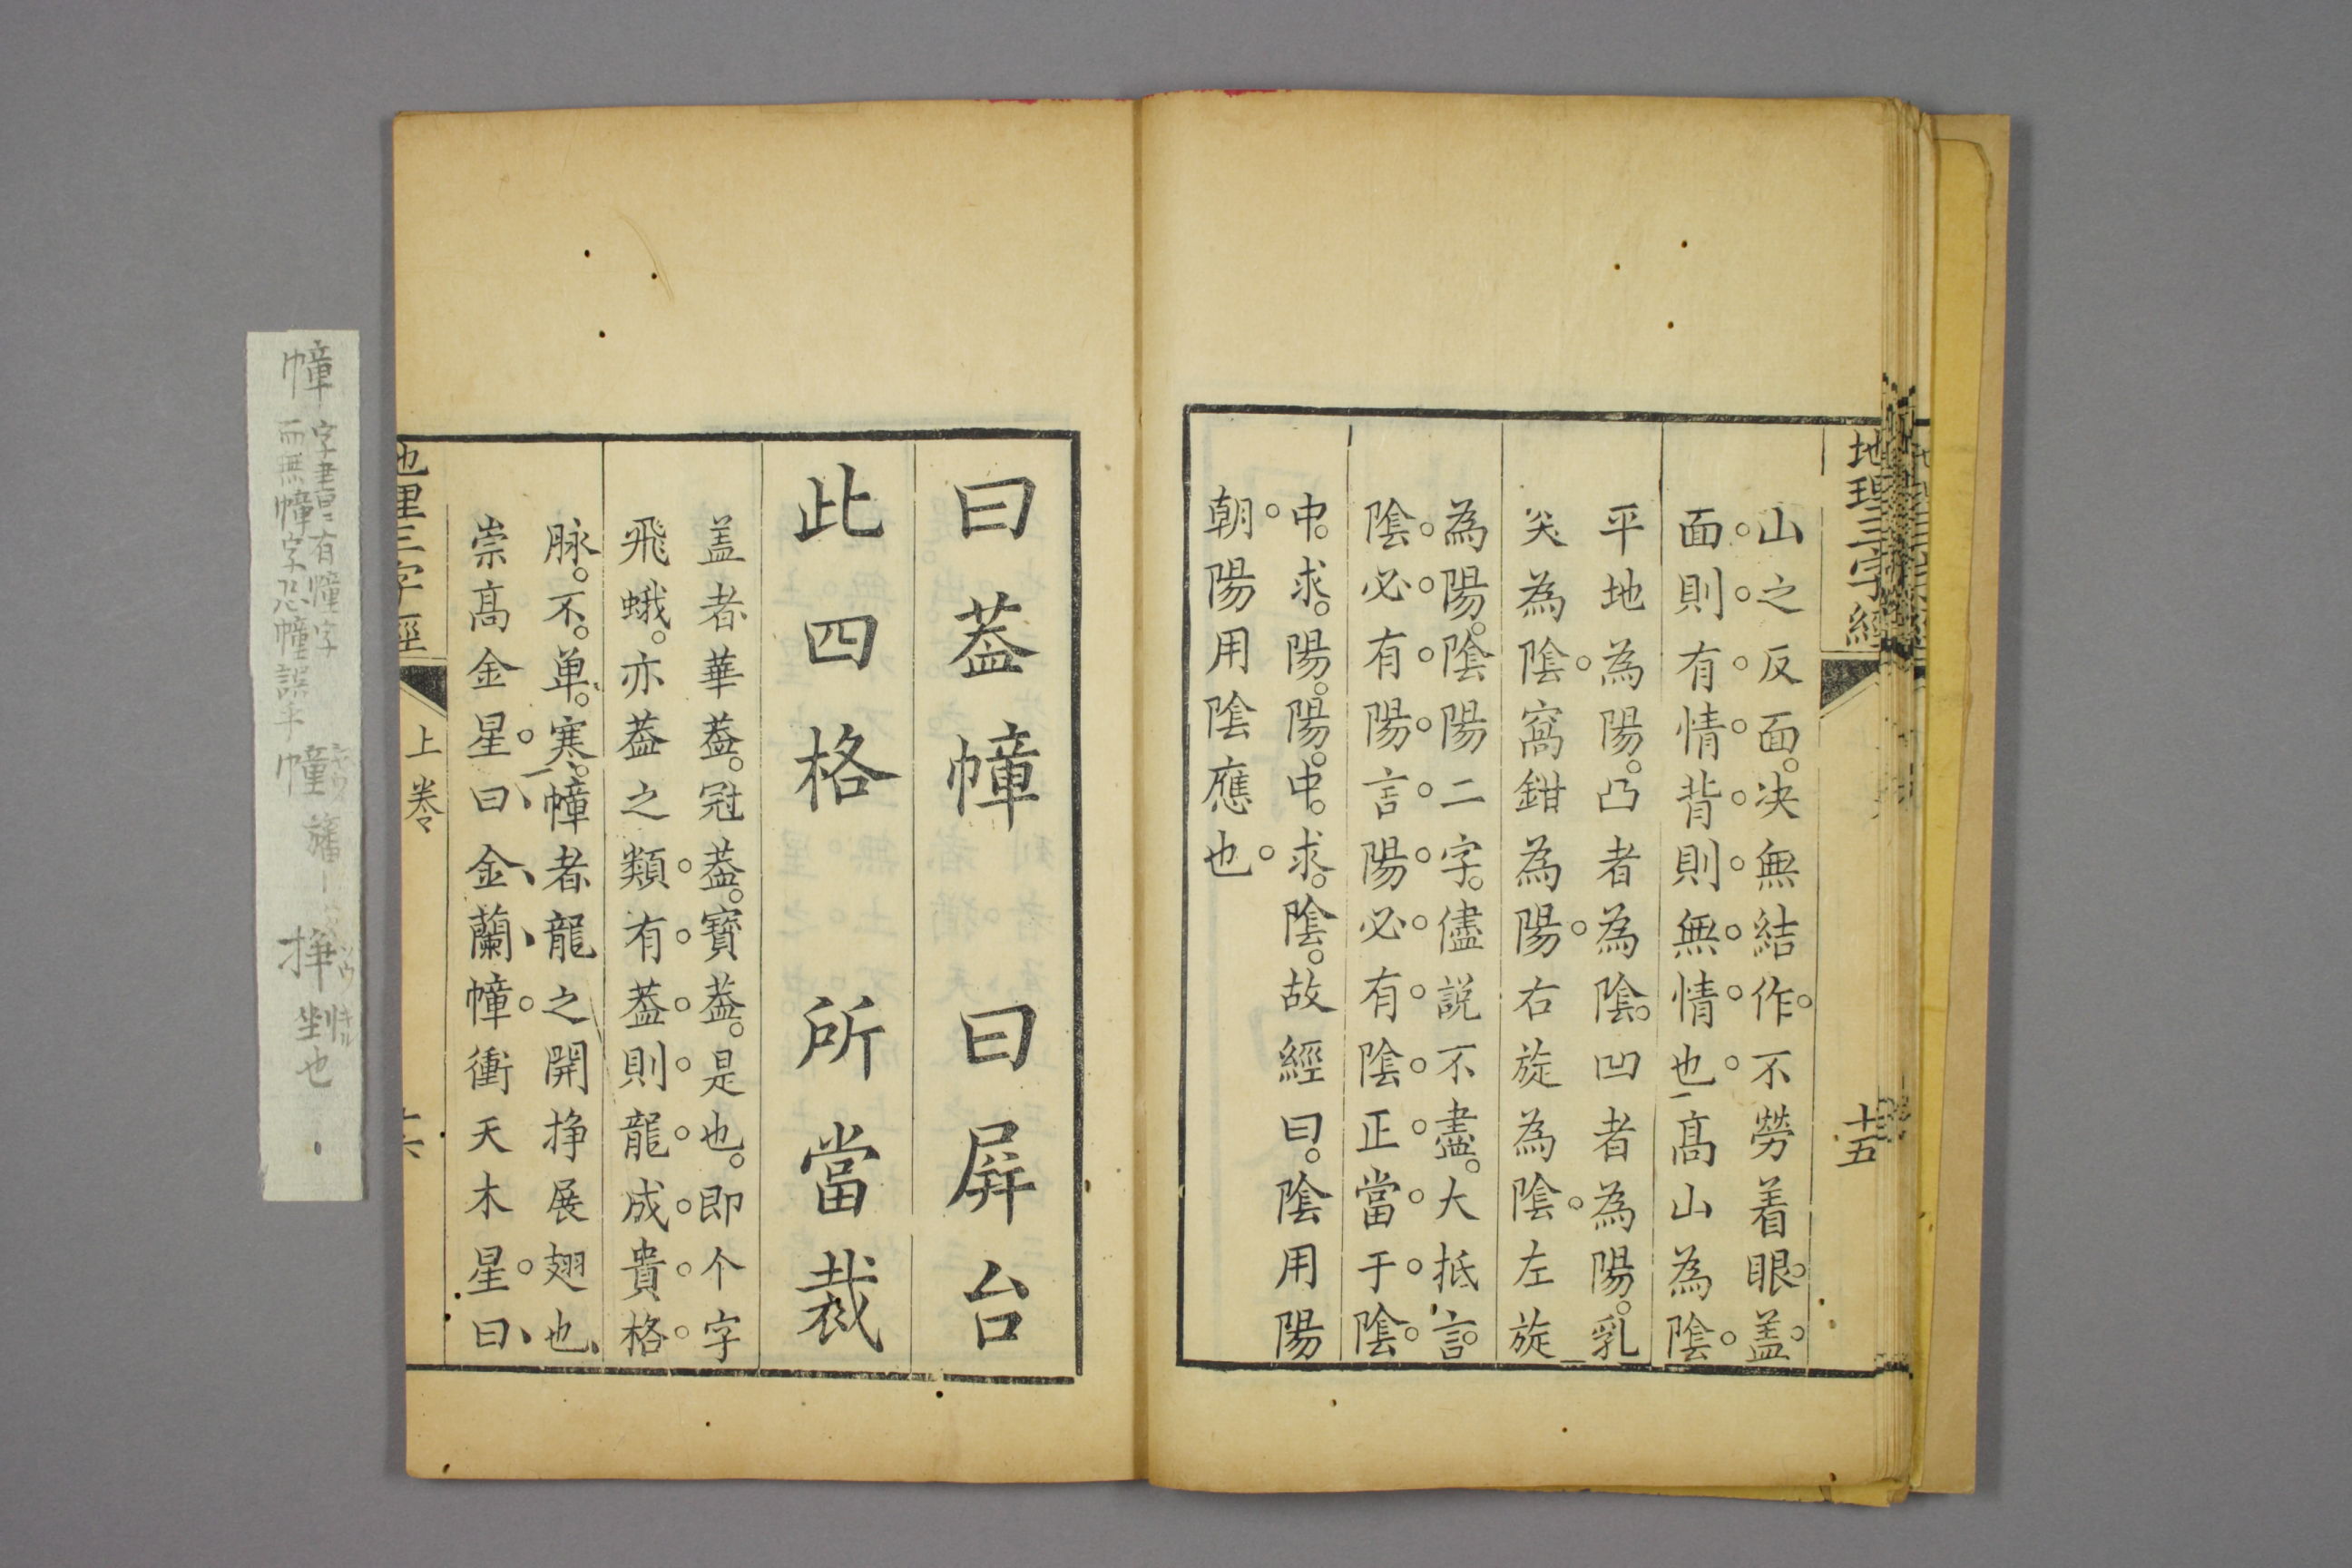 地理三字經
十五
山之反面。决無結作。不勞着眼。盖。
面。則。有。情。背。則。無。情。也。高山為陰。
平地為陽。凸者為陰。凹者為陽。乳
尖為陰。窩鉗為陽。右旋為陰。左旋
為陽。陰陽二字。儘説不盡。大抵言。
陰。必。有。陽。言。陽。必。有。陰。正。當。于。陰。
中。求。陽。陽。中。求。陰。故經曰。陰用陽
朝。陽用陰應也。
曰葢幛 曰屏台
此四格 所當裁
盖者華葢。冠葢。寳葢。是也。即个字
飛蛾。亦葢之類。有。葢。則。龍。成。貴。格。
脉。不。单。寒。幛者龍之開掙展翅也、
崇高金星。曰、金、蘭、幛。衝天木星。曰、
地理三字經
上卷
十六
幛
字書ニ有幢字
而無幛字恐幢誤乎
幢
旛
也